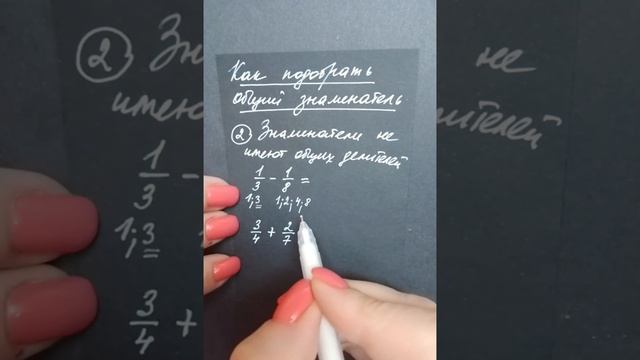 Как подобрать
общий знаменатель
② Знаменатели не
имеют общих делителей
1/3 - 1/8 =
1; 3 1; 2; 4; 8
3/4 + 2/7